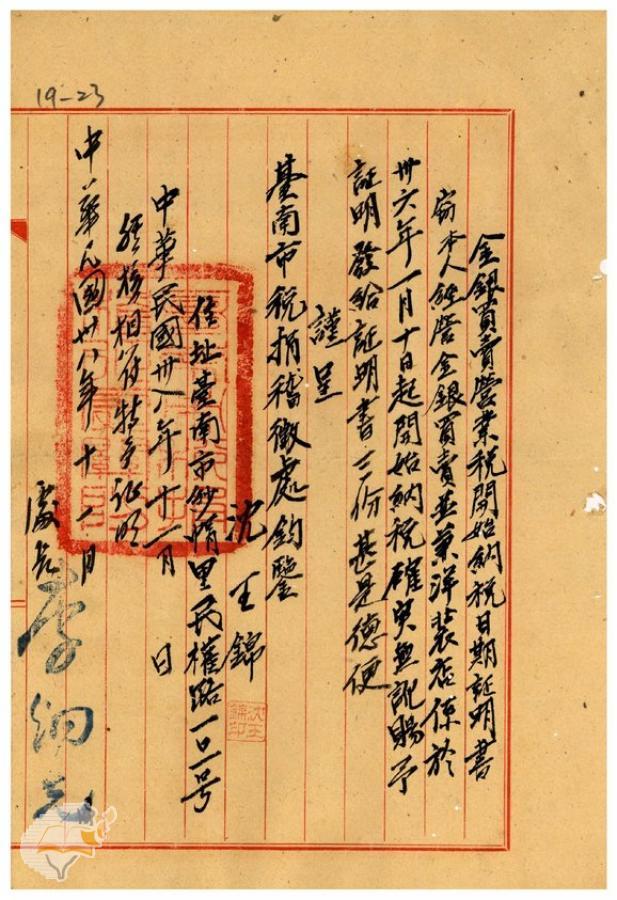 19-23
金銀買賣營業稅開始納稅日期証明書
窃本人經營金銀買賣並兼洋裝店係於
卅六年一月十日起開始納稅確實無訛賜予
証明發給証明書三份甚是德便
謹呈
臺南市稅捐稽徵處鈞鑒
沈王錦
沈王錦印
住址臺南市妙悄里民權路一二一号
中華民國卅八年十一月 日
經核相符特予证明
中華民國卅八年十一月
處長李